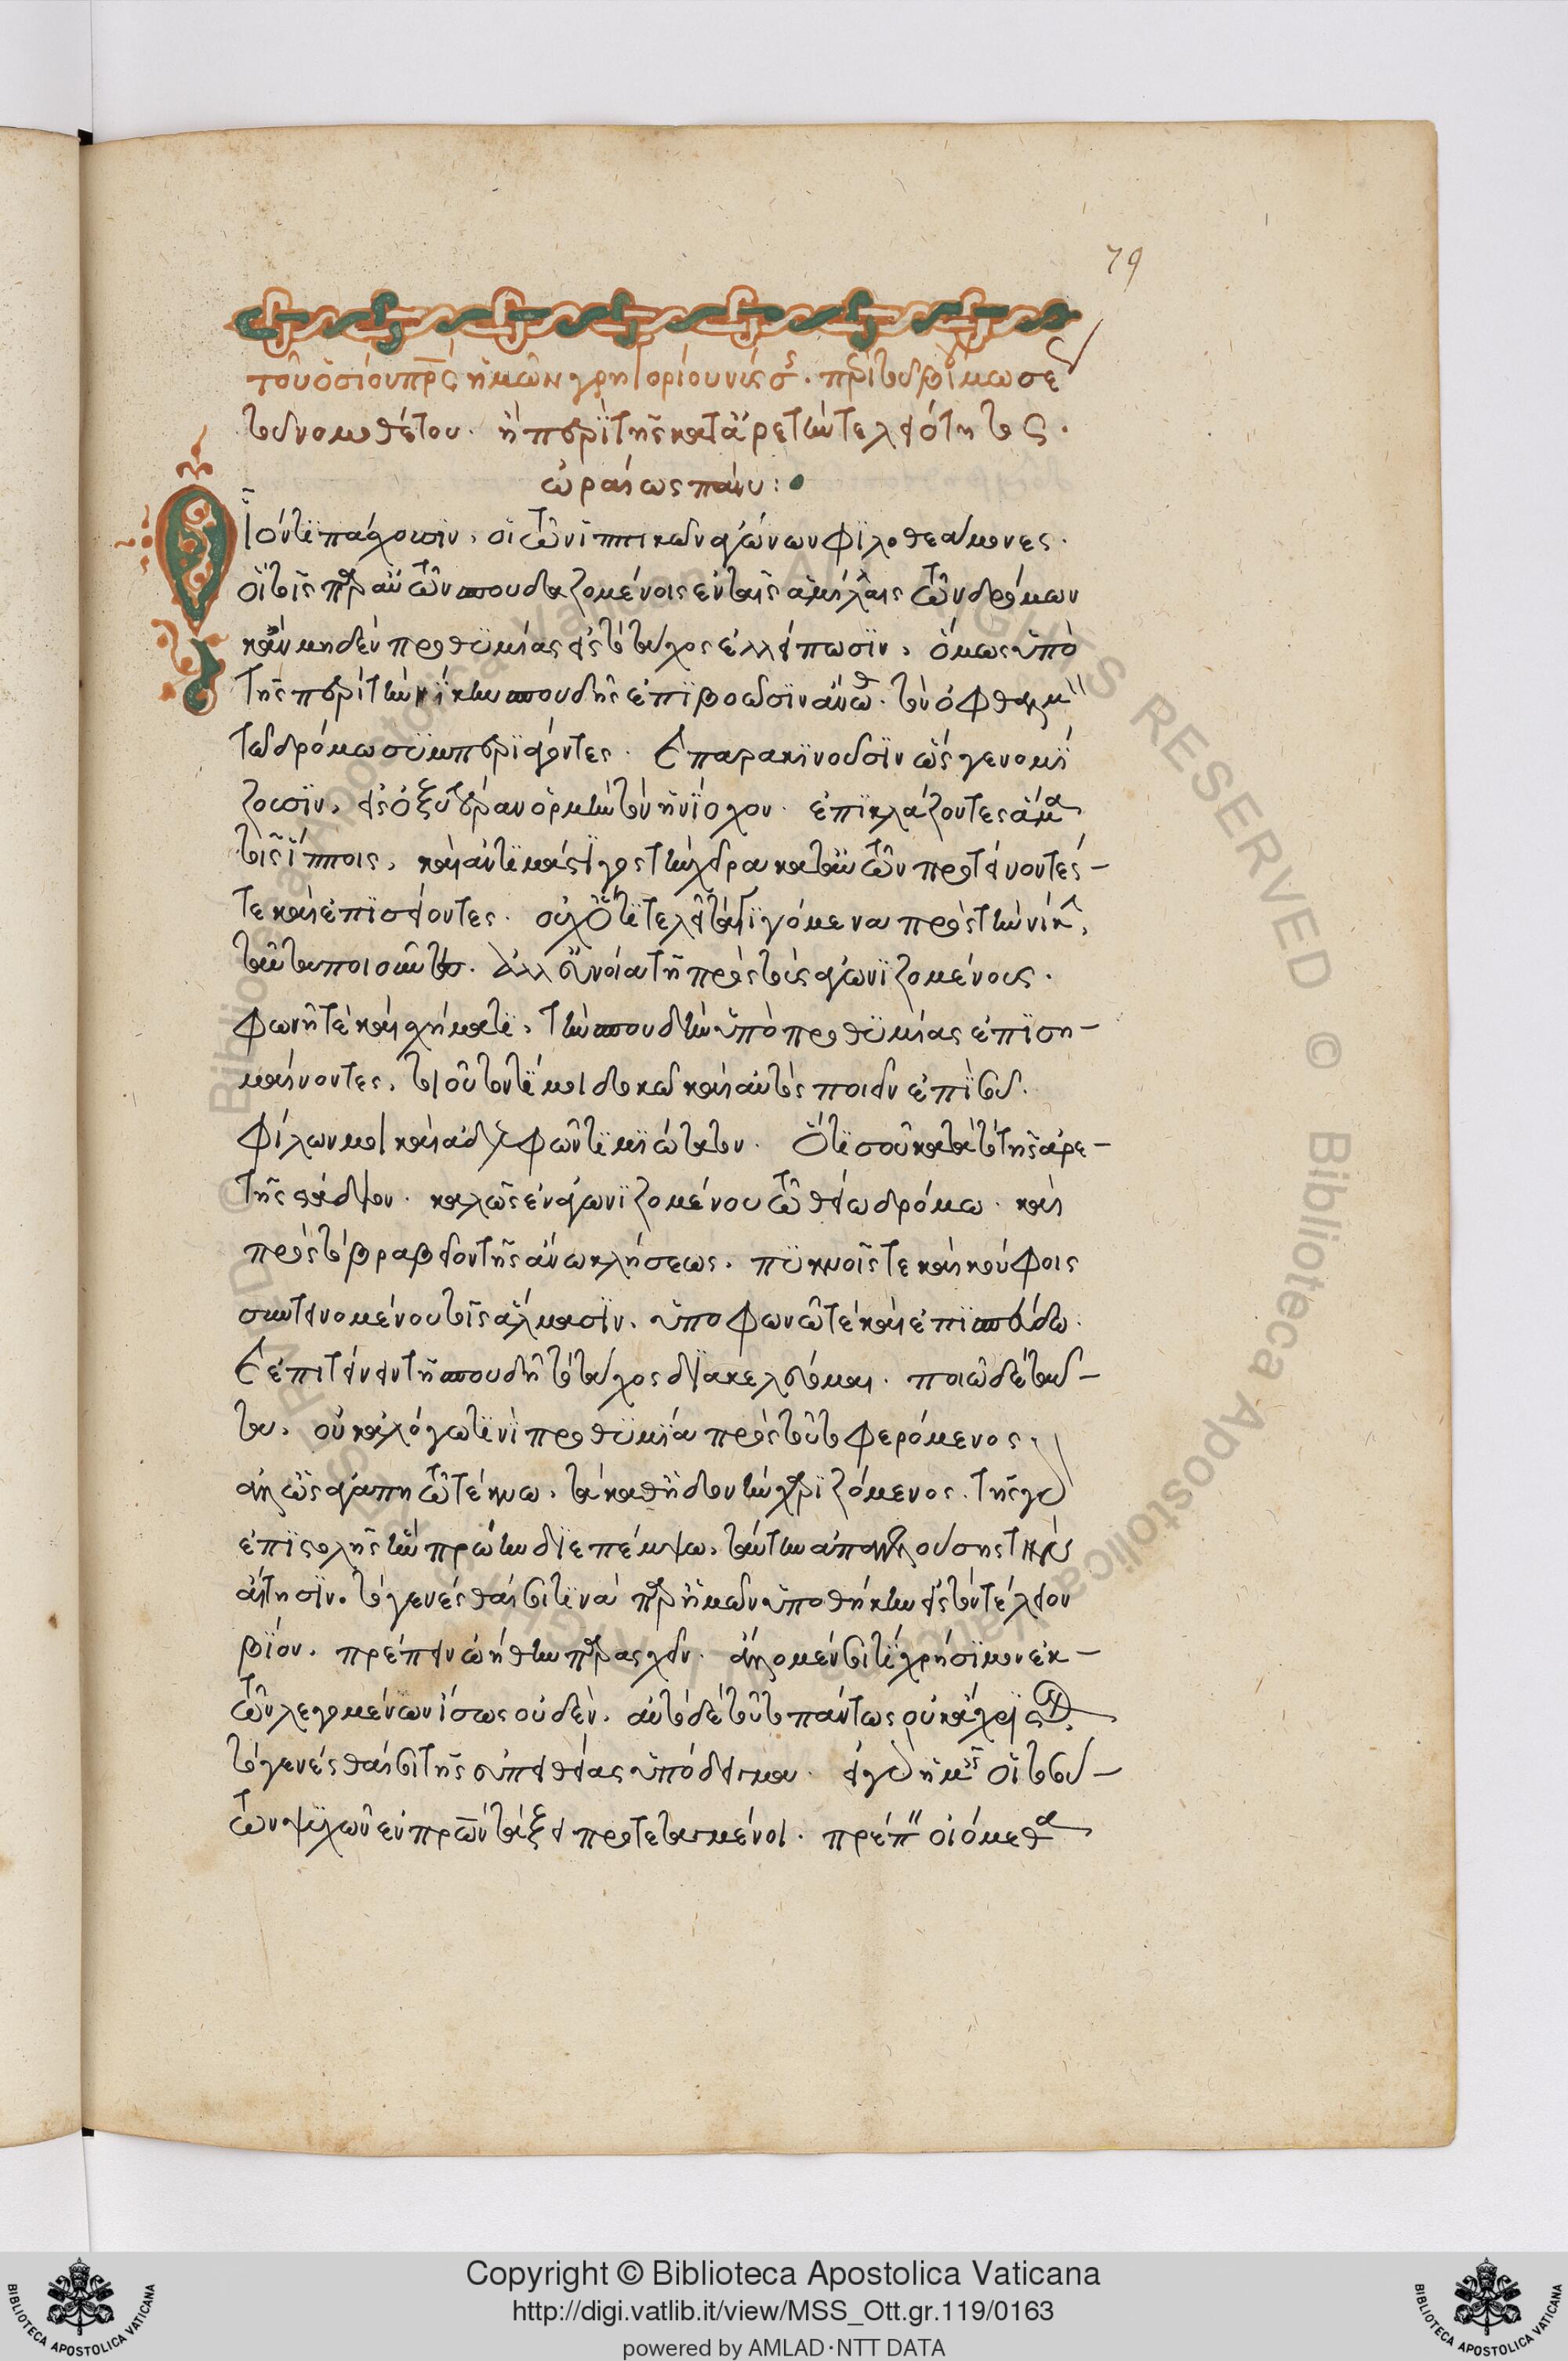 79
τοῦ ὁσίου πρς ἡμῶν γρηγορίου νύσς. περὶ τοῦ βίου μωσέ
τοῦ νομοθέτου. ἢ περὶ τῆς κατ' ἀρετὴν τελειότητος.
ὡραίως πάνυ:
Οἷόν τι πάσχουσιν, οἱ τῶν ἱππικῶν ἀγώνων φιλοθεάμονες.
οἳ τοῖς παρ' αὐτῶν σπουδαζομένοις ἐν ταῖς ἁμίλλαις τῶν δρόμων
κἂν μηδὲν προθυμίας εἰς τὸ τάχος ἐλλείπωσιν, ὅμως ὑπὸ
τῆς περὶ τὴν νίκην σπουδῆς ἐπιβοῶσιν ἄνωθ. τὸν ὀφθαλμὸν
τῶ δρόμω συμπεριάγοντες. καὶ παρακινοῦσιν ὥς γε νομί
ζουσιν, εἰς ὀξυτέραν ὁρμὴν τὸν ἡνίοχον. ἐπικλάζοντες ἅμα
τοῖς ἵπποις, καὶ ἀντὶ μάστιγος τὴν χεῖρα κατ' αὐτῶν προτείνοντές-
τε καὶ ἐπισείοντες. οὐχ ὅτι τελεῖ τὰ γιγόμενα πρὸς τὴν νίκην,
ταῦτα ποιοῦντες. ἀλλ' εὐνοία τῆ πρὸς τοὺς ἀγωνιζομένους.
φωνῆ τὲ καὶ σχήματι, τὴν σπουδὴν ὑπὸ προθυμίας ἐπιση-
μαίνοντες, τοιοῦτόν τι μοι δοκῶ καὶ αὐτὸς ποιεῖν ἐπὶ σοῦ.
φίλων μοι καὶ ἀδελφῶν τιμιώτατον. ὅτι σοῦ κατὰ τὸ τῆς ἀρε-
τῆς στάδιον. καλῶς ἐναγωνιζομένου τῶ θείω δρόμω. καὶ
πρὸς τὸ βραβεῖον τῆς ἄνω κλήσεως. πυκνοῖς τε καὶ κούφοις
συντεινομένου τοῖς ἅλμασιν, ὑποφωνῶ τὲ καὶ ἐπισπεύδω.
καὶ ἐπιτείνειν τῆ σπουδῆ τὸ τάχος διακελεύομαι. ποιῶ δὲ τοῦ-
το, οὐκ ἀλόγω τινὶ προθυμία πρὸς τοῦτο φερόμενος.
ἀλλ' ὡς ἀγαπητῶ τέκνω, τὰ καθ' ἡδονὴν χαριζόμενος. τῆς γὰρ
ἐπιστολῆς ἣν πρώην διεπέμψω, ταύτην ἀπαγγελλούσης τὴν
αἴτησιν. τὸ γενέσθαι σοί τινα παρ' ἡμῶν ὑποθήκην εἰς τὸν τέλειον
βίον. πρέπειν ὠήθην παρασχεῖν. ἀλλ' ὁ μὲν σοί τι χρήσιμον ἐκ-
τῶν λεγομένων ἴσως οὐδὲν. αὐτὸ δὲ τοῦτο πάντως οὐκ ἄχρηστον.
τὸ γενέσθαι σοι τῆς εὐπειθείας ὑπόδειγμα. εἰ γὰρ ἡμεῖς οἱ τοσού-
των ψυχῶν ἐν πρων τάξει προτεταγμένοι. πρέπειν οἰόμεθα
Copyright © Biblioteca Apostolica Vaticana
http://digi.vatlib.it/view/MSS_Ott.gr.119/0163
powered by AMLAD·NTT DATA
BIBLIOTECA APOSTOLICA VATICANA
BIBLIOTECA APOSTOLICA VATICANA